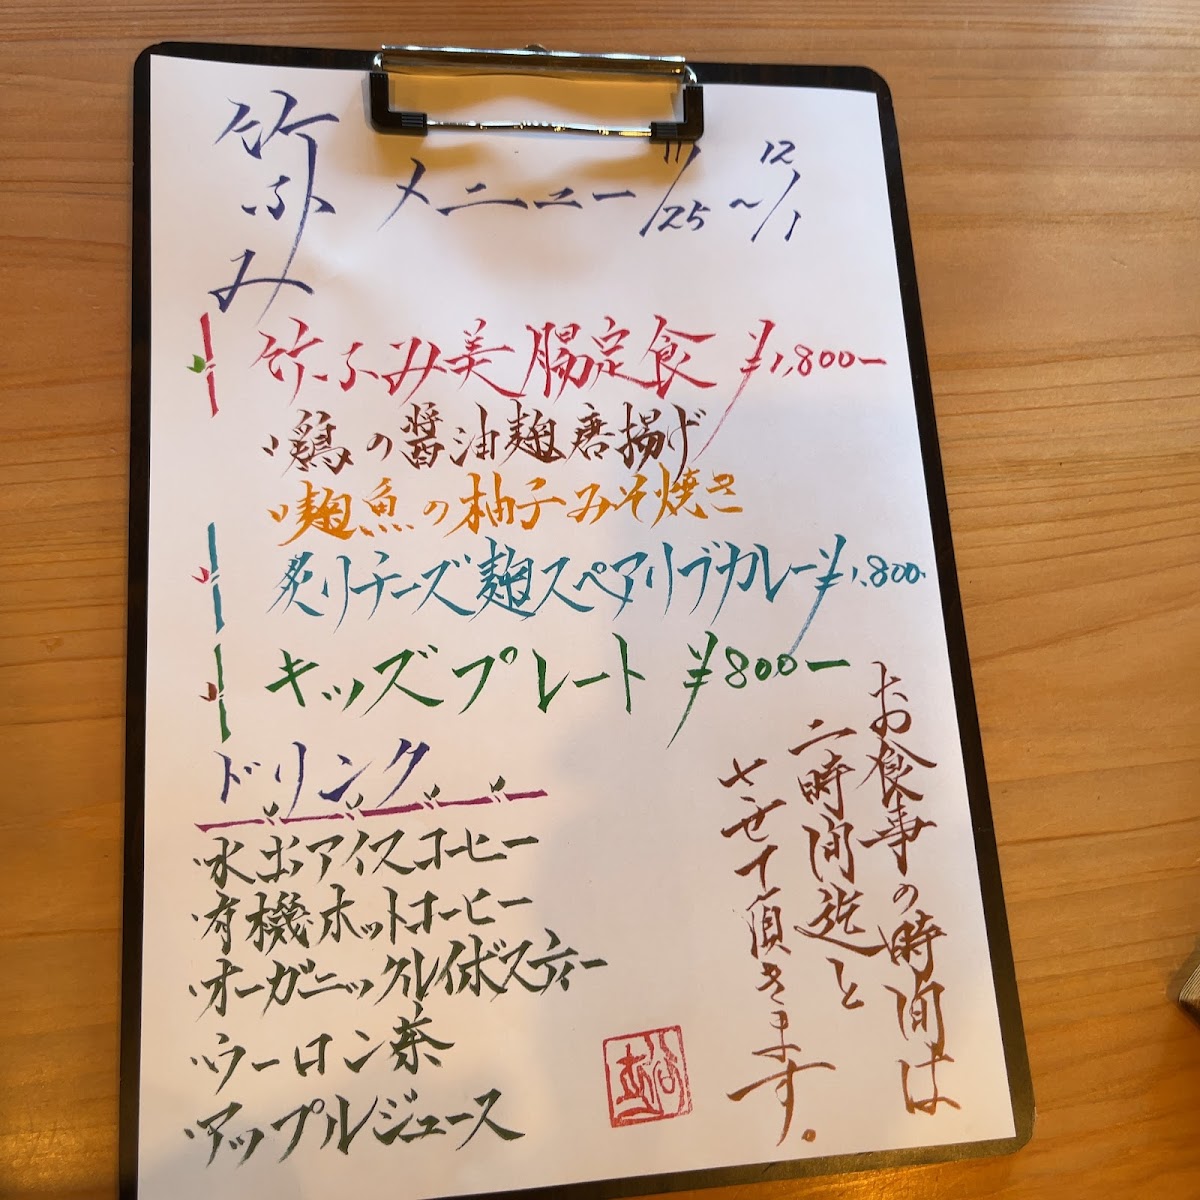 竹ふみ メニュー 11/25~12/1
竹ふみ美腸定食 ¥1,800ー
・鶏の醤油麹唐揚げ
・麹魚の柚子みそ焼き
炙りチーズ麹スペアリブカレー ¥1,800.
キッズプレート ¥800ー
ドリンク
・水出アイスコーヒー
・有機ホットコーヒー
・オーガニックルイボスティー
・ウーロン茶
・アップルジュース
お食事の時間は
二時間迄と
させて頂きます。